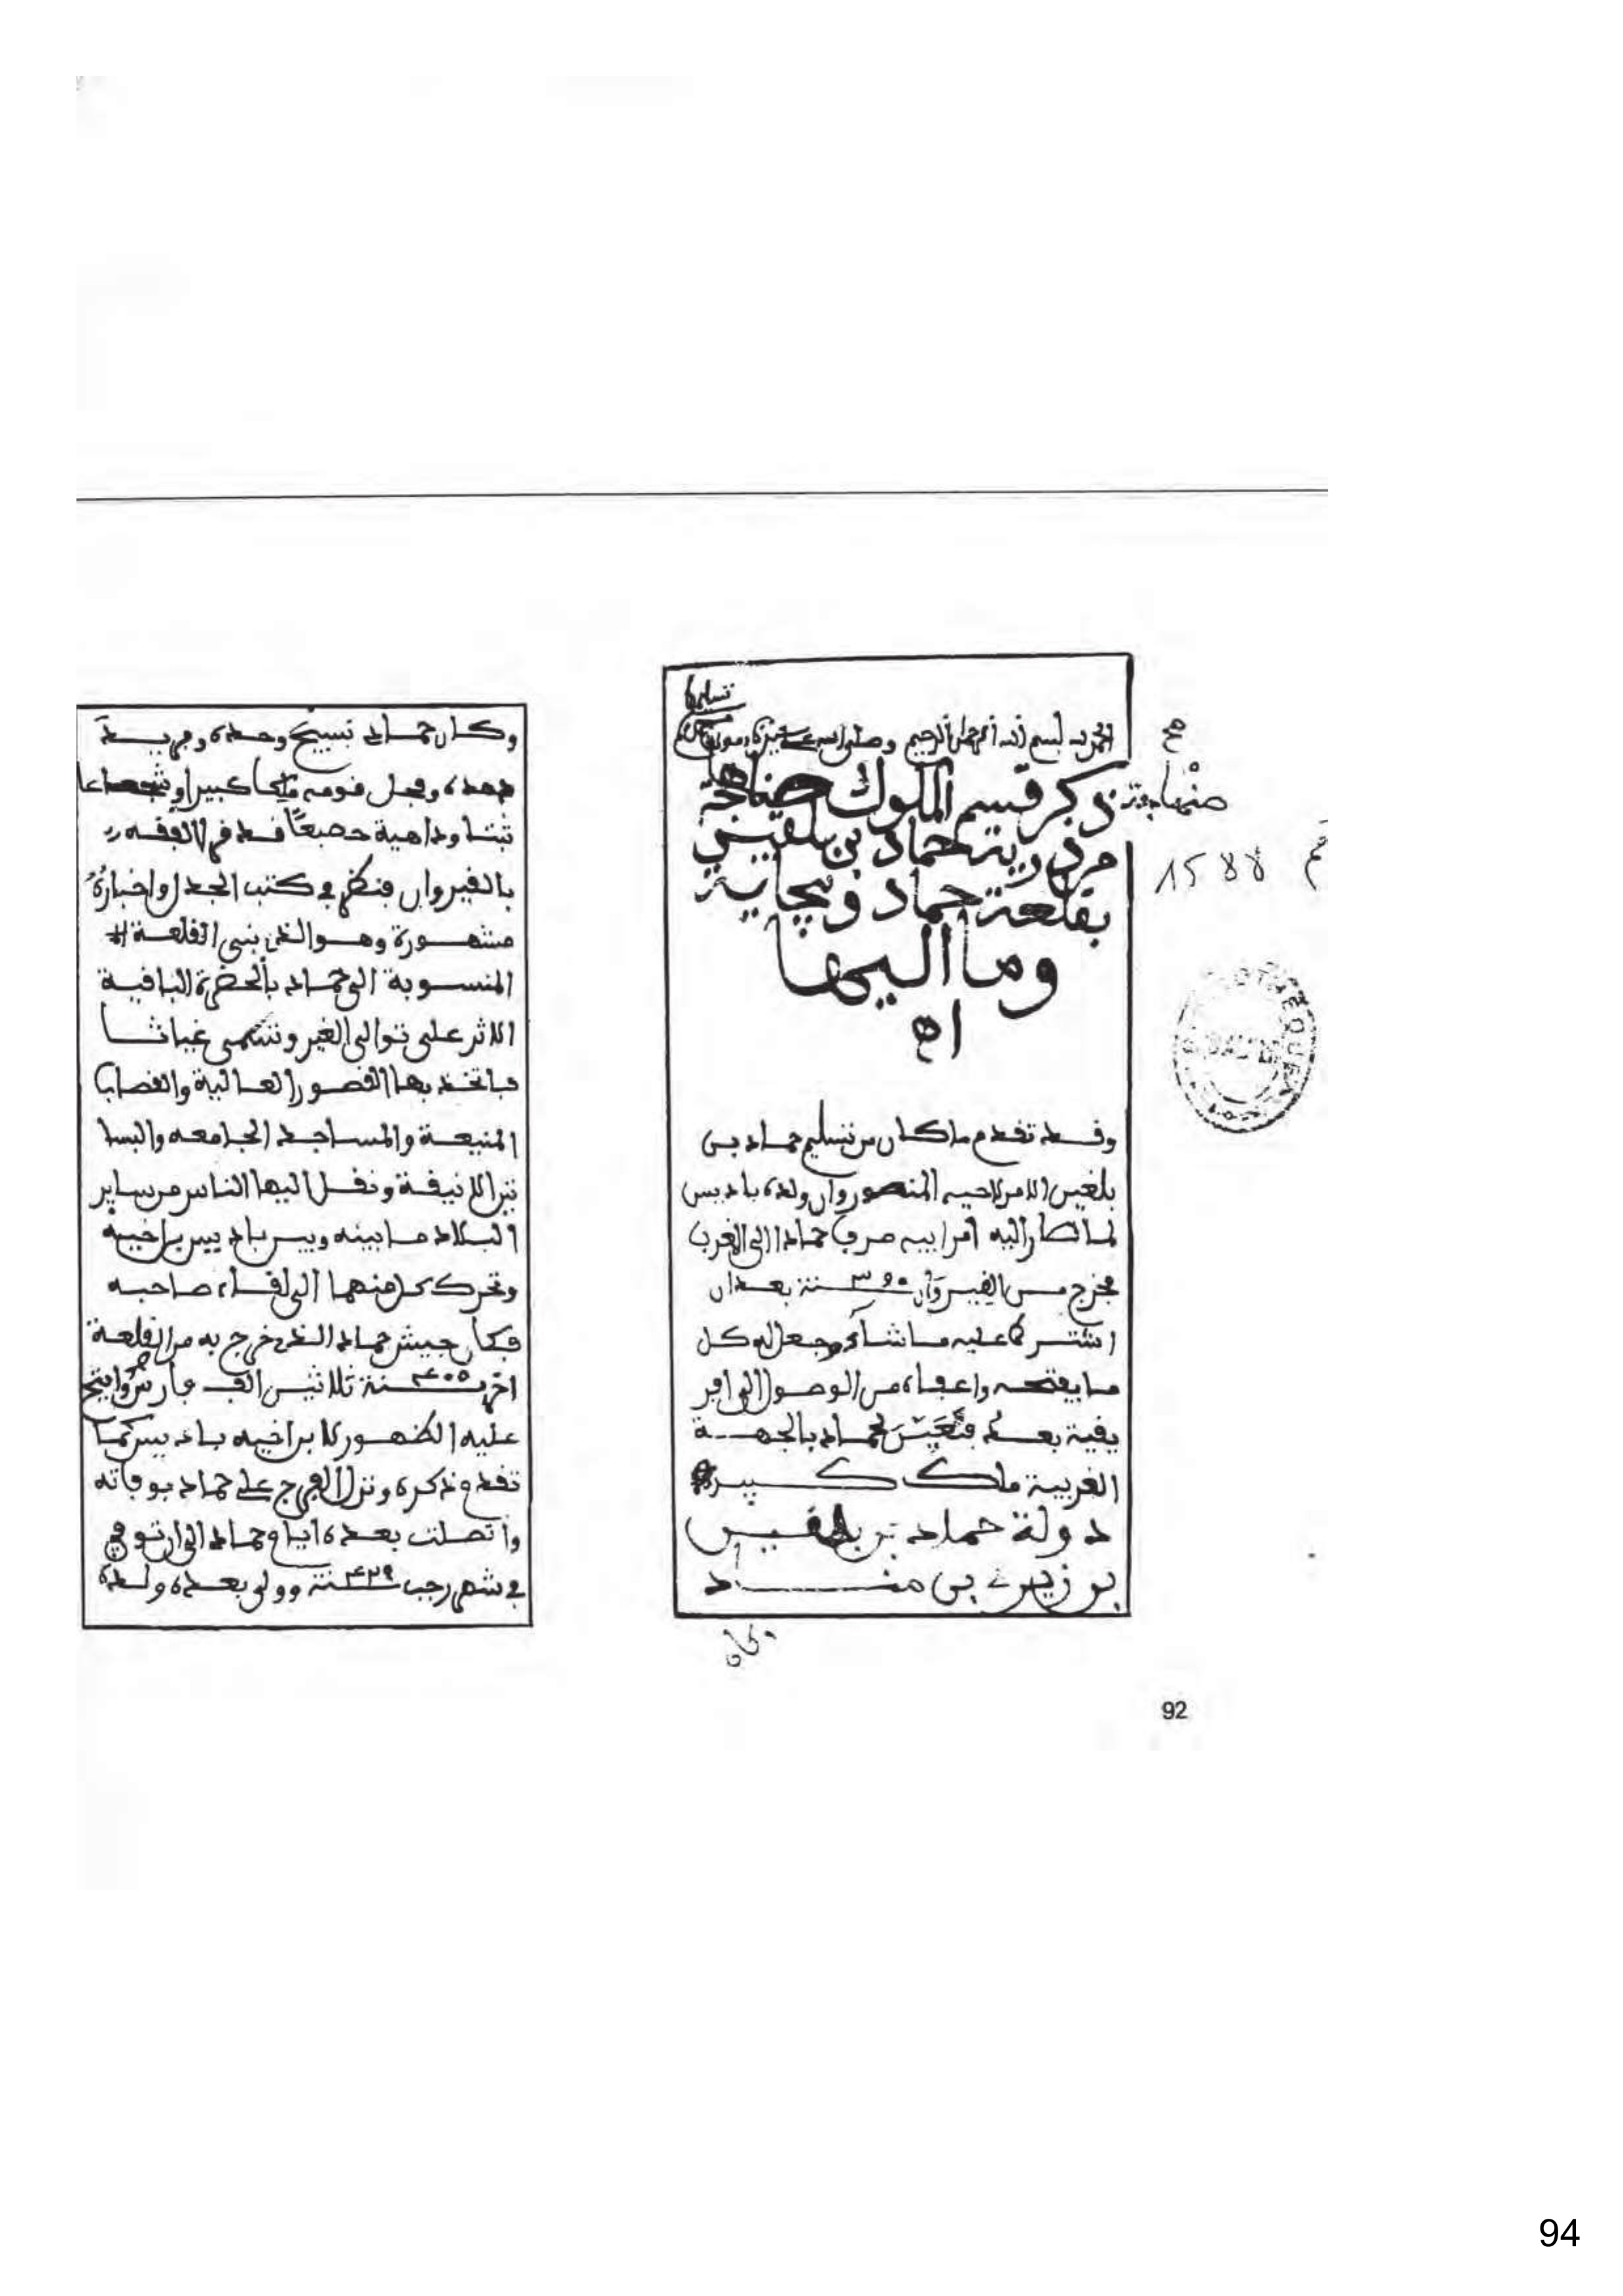 تسليما
الحمد لله بسم الله الرحمن الرحيم وصلى الله على
صح
صنهاجة
ذكر قسم الملوك صناهجة
من ذرية حماد بن بلقيس
بقلعة حماد وبجاية
وما اليها
اه
م 1588
وقد تقدم ما كان من تسليم حماد بن
بلغيس الامر لاخيه المنصور وان ولده باديس
لما صار اليه امر ابيه صرف حمادا الى الغرب
فخرج من القيروان سنة ٣٩٠ بعد ان
اشترط عليه ما شاء وجعل له كل
ما يفتحه واعفاه من الوصول الى افر
يقية بعد فتعين لحماد بالجهة
الغربية ملك كبير
دولة حماد بن بلقيس
بن زيري بن مناد
وكان
وكان حماد نسيج وحده وفريد
دهره وفحل قومه ملكا كبيرا وشجاعا
ثبتا وداهية حصيفا قد قرا الفقه
بالقيروان ونظر في كتب الجدل واخباره
مشهورة وهو الذي بنى القلعة
المنسوبة الى حماد بالحضرة الباقية
الاثر على توالي الغير وتسمى
فاتخذ بها القصور العالية والقصاب
المنيعة والمساجد الجامعه والبسا
تين الانيفة ونقل اليها الناس من ساير
البلاد ما بينه وبين باديس بن اخيه
وتحرك كل منهما الى لقاء صاحبه
فكان جيش حماد الذي خرج به من القلعة
اخر سنة ٤٠٥ ثلاثين الف فارس وانتج
عليه الظهور لابن اخيه باديس كما
تقدم ذكره ونزل الفرج على حماد بوفاته
واتصلت بعده ايام حماد الى ان توفي
في شهر رجب سنة ٤٢٩ وولي بعده ولده
92
94